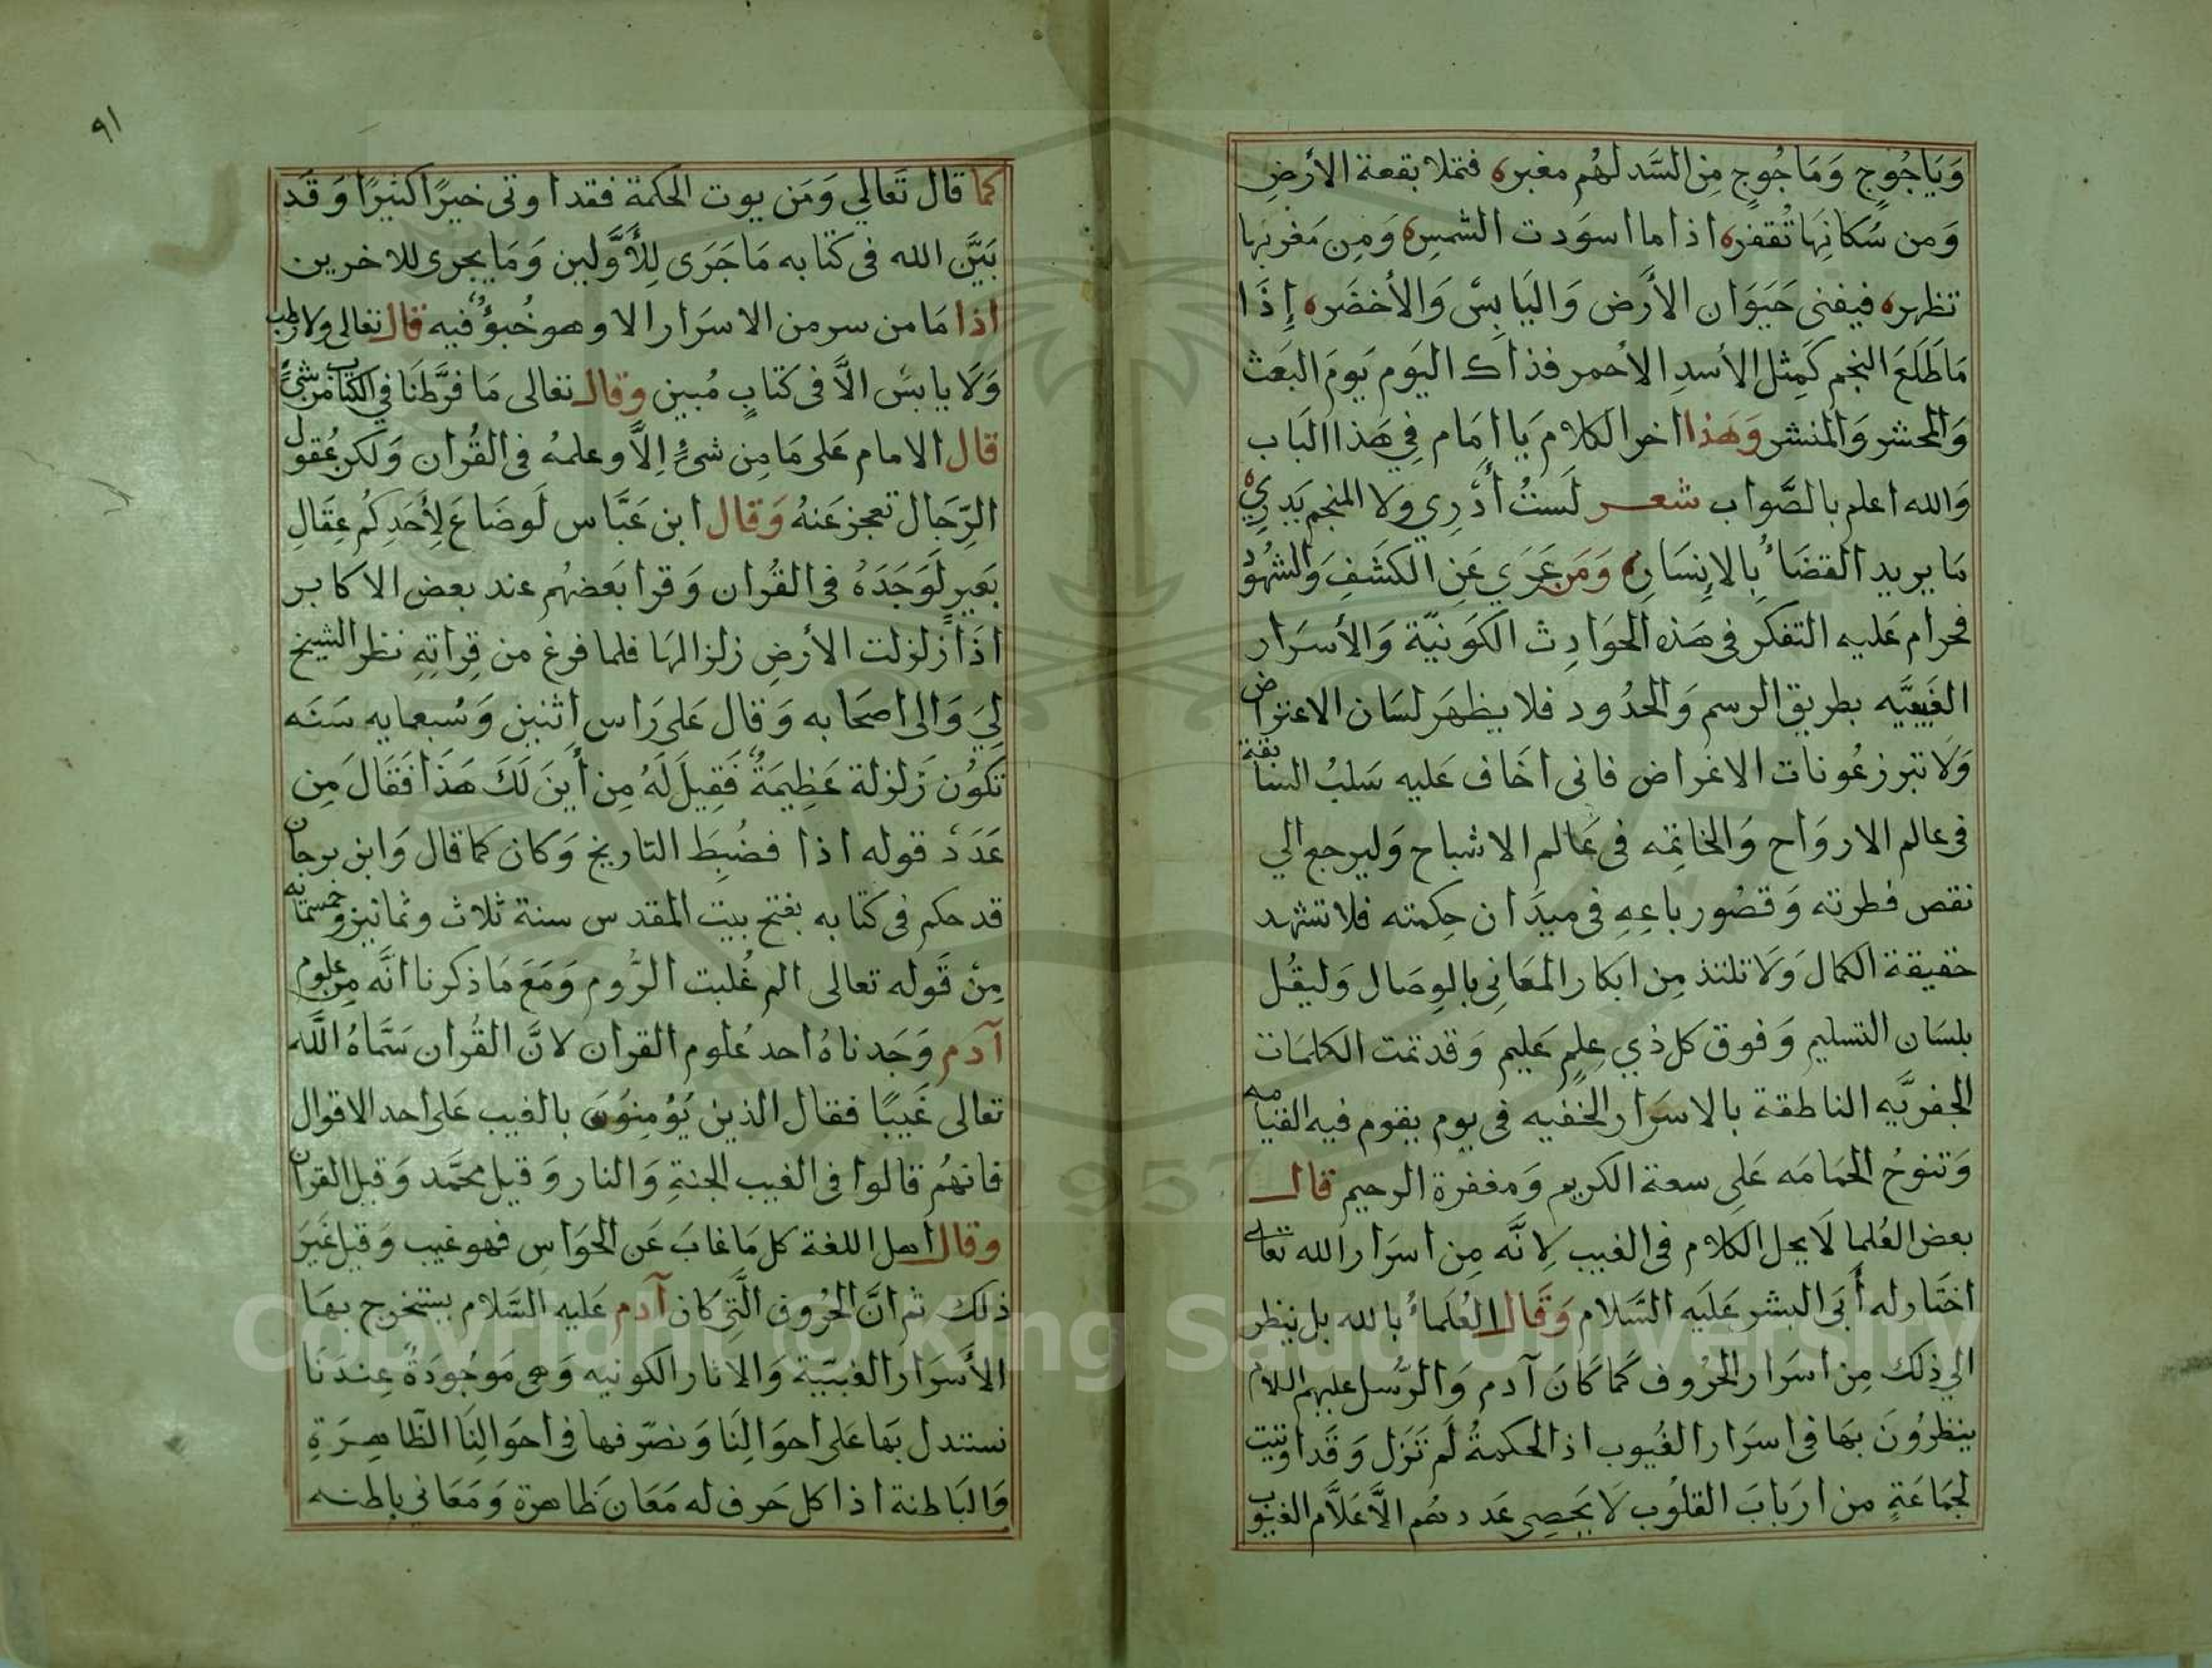 وَيَاجُوجٍ وَمَاجُوجٍ مِنَ السَّد لهُم مغبره فتملا بقعة الأرضِ
وَمن سُكانِهَا تُقفره اذا ما اسوَدت الشمس وَمِن مَغربها
تظهره فيفنى حَيَوَان الأَرض وَاليَابِسْ وَالأخضَره إِذَا
مَا طَلَعَ النجم كَمِثل الأسدِ الاحمر فذاك اليَوم يَومَ البَعَث
وَالمحشر وَالمنشر وَهَذا اخر الكلام يَا امَام فِي هَذا البَاب
وَالله اعلم بالصَّواب شعر لَستُ أَدْرِي ولا المنجم يَدرِي
مَا يريد القضَاءُ بِالإِنسَان وَمَن عَرِيَ عَنِ الكَشَفِ وَالشهُود
فحرام عَليه التفكر فى هَذه الحوَادِث الكَوَنيّة وَالأسرَار
الغَيبيَّه بطريق الرسم وَالحدُود فلا يظهَر لسَان الاعتراض
وَلا تبرز عُونات الاغراض فانى اخَاف عَليه سَلبُ السابقة
فى عالم الارواح وَالخاتمه فى عَالم الاشباح وَليرجع الي
نقص فطرته وَقصُور باعِهِ فى ميدَان حِكمته فلا تشهد
حقيقة الكمال وَلا تلتذ مِن ابكار المعَانِى بالوِصَال وَليقُل
بلسَان التسليم وَفوق كل ذي عِلمٍ عَليم وَقد تمت الكلمَات
الجفريَّه الناطقة بالاسرَار الخفيه فى يوم يقوم فيه القيامه
وَتنوحُ الحمَامَه عَلى سعة الكريم وَمغفرة الرحيم قال
بعض العُلما لَا يحل الكلام فى الغيب لِانَّه مِن اسرَار الله تعالى
اختَاره له أَبى البشر عَليَه السَّلام وَقَال العُلَماءُ بالله بل ينظر
الي ذلِك مِن اسرَار الحرُوف كمَا كَانَ آدم وَالرّسُل عليهم السلام
ينظرُونَ بهَا فى اسرَار الغُيوب اذ الحكمةُ لَم تَزَل وَقَد اوتيت
لجمَاعَةٍ من ارَبابَ القلُوب لَا يَحصِى عَددهُم الَّا عَلَّام الغيوب
٩١
كما قال تَعَالي وَمَن يوت الحكمة فقد اوتى خيرًا كثيرًا وَقَد
بَيَّن الله فى كتابه مَا جَرَى لِلأَوَّلين وَمَا يجرى للاخرين
اذا مَا من سر من الاسرَار الا وهو خُبوُءٌ فيه قال تعالى ولا رطب
وَلَا يابسٌ الَّا فى كتابٍ مُبين وقال تعالى مَا فرَّطنَا فِي الكتاب من شئٍ
قال الامام عَلى مَا مِن شئٍ اِلَّا وعلمهُ فى القُران وَلكن عُقول
الرّجَال تعجز عَنهُ وَقال ابن عَبَّاس لَو ضَاعَ لِأَحَدِكُم عِقَالِ
بَعيرٍ لَوَجَدَهُ فى القُران وَقرا بَعضهُم عند بعض الاكابر
اذَا زلزلت الأرضِ زلزالهَا فلما فرغ من قِراتِهِ نظر الشيخ
لِيَ وَالى اصحَابه وَقال عَلى رَاس اِثنين وَسُبعمايه سَنَه
تَكوُن زَلزلة عَظِيمَةٌ فَقِيلَ لَهُ مِن أَينَ لَكَ هَذَا فَقَالَ مِن
عَدَدْ قوله اذا فضُبِطَ التاريخ وَكان كما قال وَابن برجان
قد حكم فى كتابه بفتح بيت المقدس سنة ثلاث وثمانين وخمسمائه
مِنْ قَوله تعالى الم غُلبت الرُّوم وَمَعَ مَا ذكرنا انَّه مِن علوم
آدم وَجَدناهُ احد عُلوم القران لانَّ القُران سَمَّاهُ اللَّه
تعالى غَيبًا فقال الذين يُؤمِنوُنَ بالغيب عَلى احد الاقوال
فانهُم قالوا فى الغيب الجنةِ وَالنار وَقيل محمَّد وَقيل القران
وقال أهل اللغة كل مَا غابَ عَن الحَوَاسِ فهو غيب وَقيل غَيرَ
ذلك ثم انَّ الحرُوف الَّتِى كان آدم عَليه السَّلام يستخرج بهَا
الأَسَرارَ الغيبيّة وَالاثار الكونيه وَهِى مَوجُودَةٌ عِندَنَا
نستدل بهَا عَلى احوَالِنَا وَنصّرفها فى احوَالِنَا الظَّاهِرَةِ
وَالبَاطنة اذا كل حَرف له مَعَان ظاهرة وَمَعَانى باطنه
Copyright © King Saud University
1957